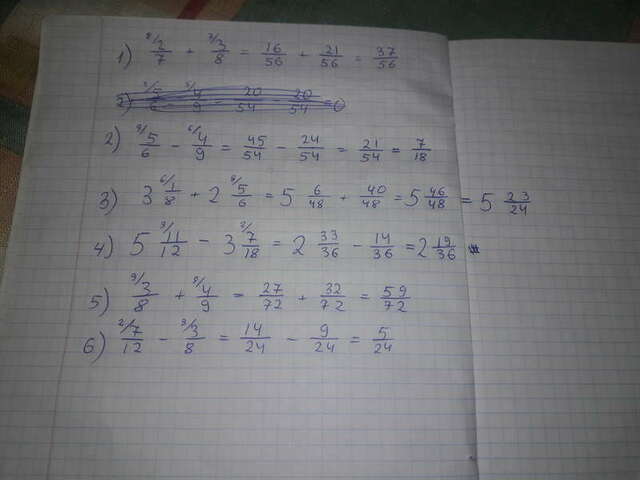 1) 8/ 2/7 + 7/ 3/8 = 16/56 + 21/56 = 37/56
2) 9/ 5/6 - 6/ 4/9 = 45/54 - 24/54 = 21/54 = 7/18
3) 3 6/ 1/8 + 2 8/ 5/6 = 5 6/48 + 40/48 = 5 46/48 = 5 23/24
4) 5 3/ 11/12 - 3 2/ 7/18 = 2 33/36 - 14/36 = 2 19/36
5) 9/ 3/8 + 8/ 4/9 = 27/72 + 32/72 = 59/72
6) 2/ 7/12 - 3/ 3/8 = 14/24 - 9/24 = 5/24